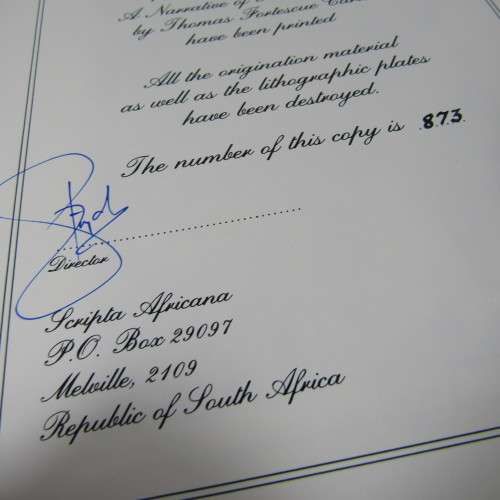 A Narrative of
by Thomas Fortescue
have been printed
All the origination material
as well as the lithographic plates
have been destroyed.
The number of this copy is 873.
Director
Scripta Africana
P.O. Box 29097
Melville, 2109
Republic of South Africa